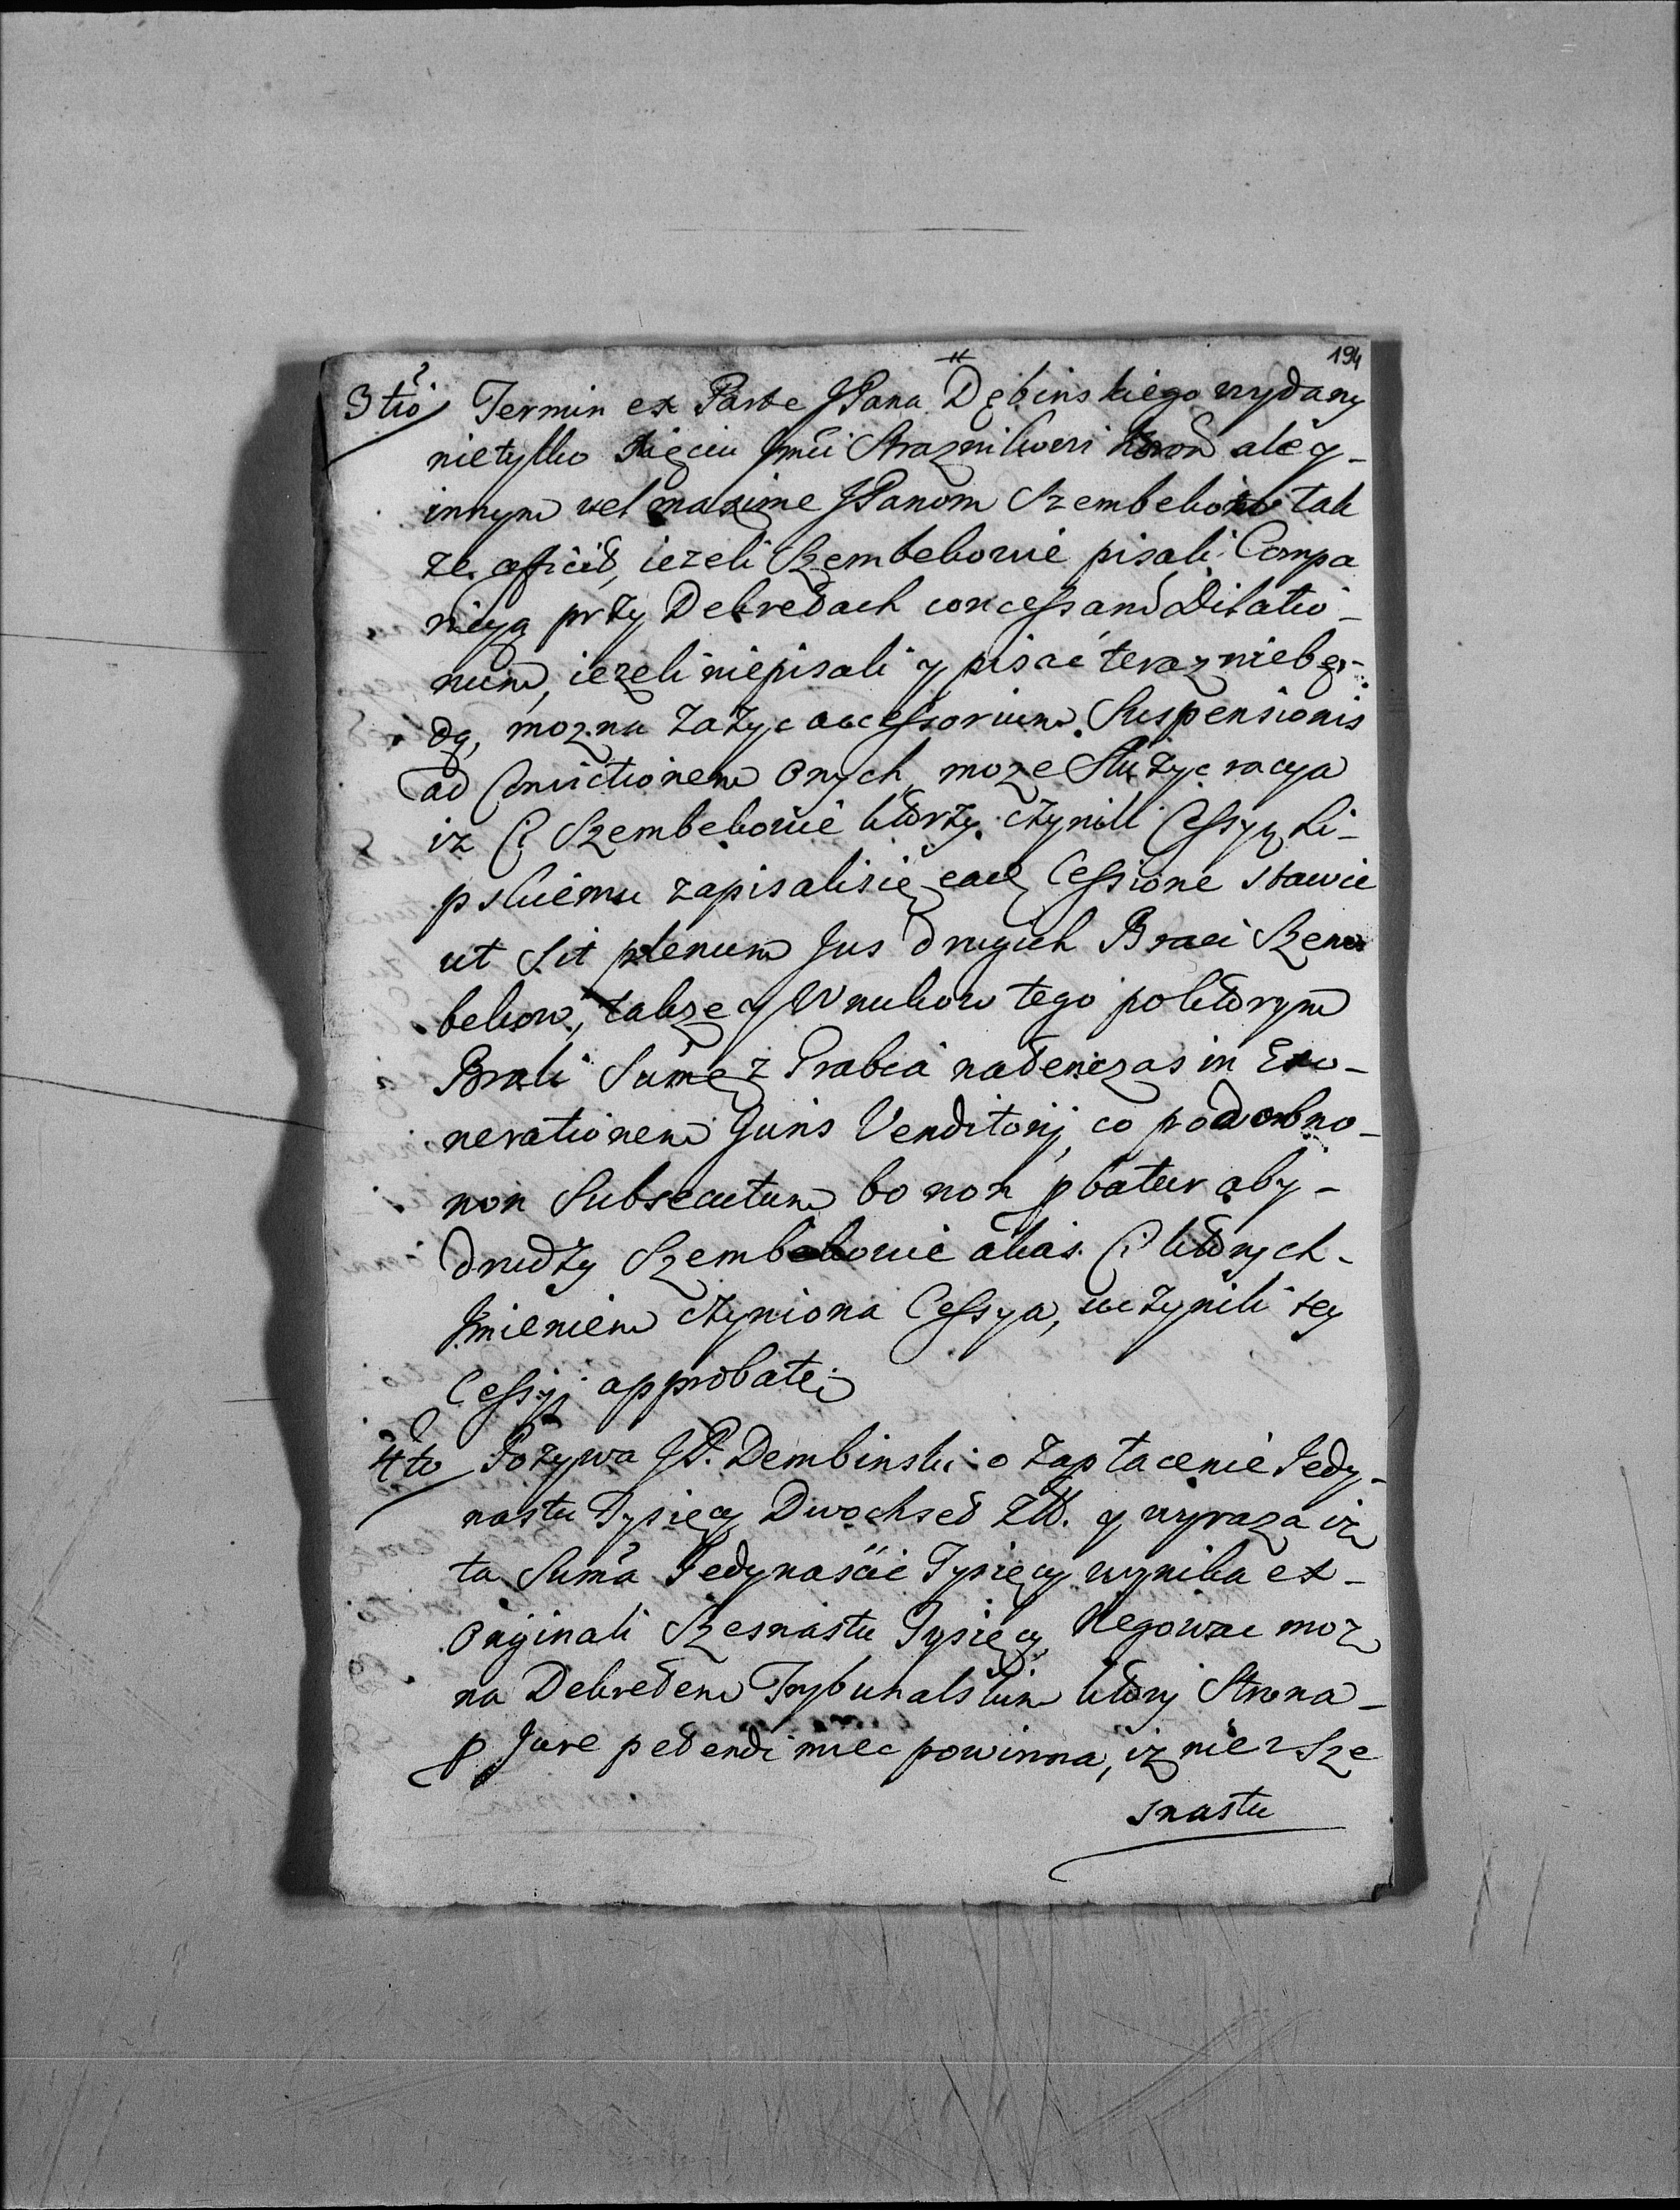 194
3tio Termin ex Parte JPana Dębinskiego wydany
nietylko Xięciu Jmci Straznikowi Koron ale y
innym vel maxime JPanom Szembekom tak
ze officit, iezeli Szembekowie pisali Compa
ricyą przy Dekretach concessand Dilatio-
num, iezeli niepisali y pisać teraz niebę-
dą, mozna zazyc accessorium Suspensionis
ad Convictionem onych, moze Słuzyc racya
iz Ci Szembekowie ktorzy czynili Cessyą Li-
pskiemu zapisalisię eadem Cessione stawic
ut sit plenum Jus drugich Braci Szem
bekow, takze y Wnukow tego poktorym
Brali Summę z Prabca natenczas in Exo-
nerationem Juris Venditorij, co podobno-
non Subsecutum bo non pbatur aby-
drudzy Szembekowie alias Ci ktorych-
Jmieniem czyniona Cessya, uczynili tey
Cessyi approbatę
4to Pozywa JP. Dembinski o zapłacenie Jedy-
nastu Tysięcy Dwochset Zł. y wyraza iz
ta Summa Jedynaście Tysięcy wynika ex-
Originali Szesnastu Tysięcy Negowac moz
na Dekretem Trybunalskim ktory Strona-
p Jure petendi miec powinna, iz nie z Sze
snastu